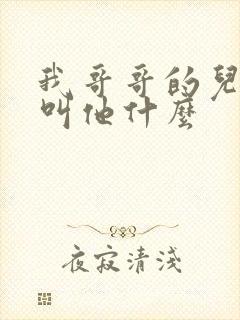 我哥哥的兒
叫他什麼
夜寂清淺